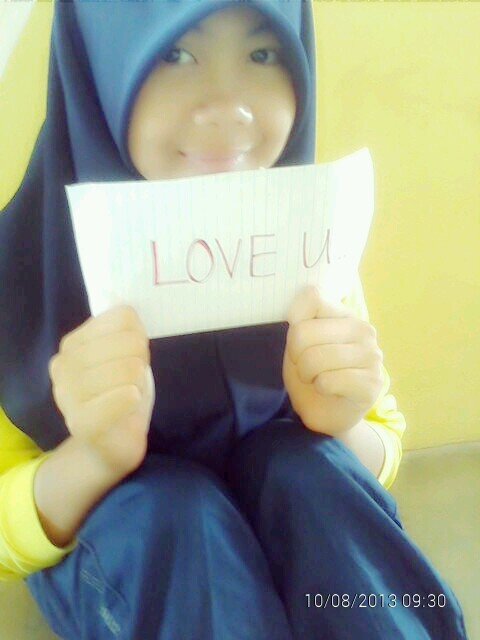 LOVE U..
10/08/2013 09:30